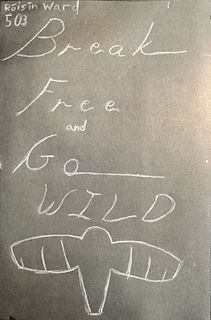 Róisín Ward
503
Break
Free
and
Go
WILD